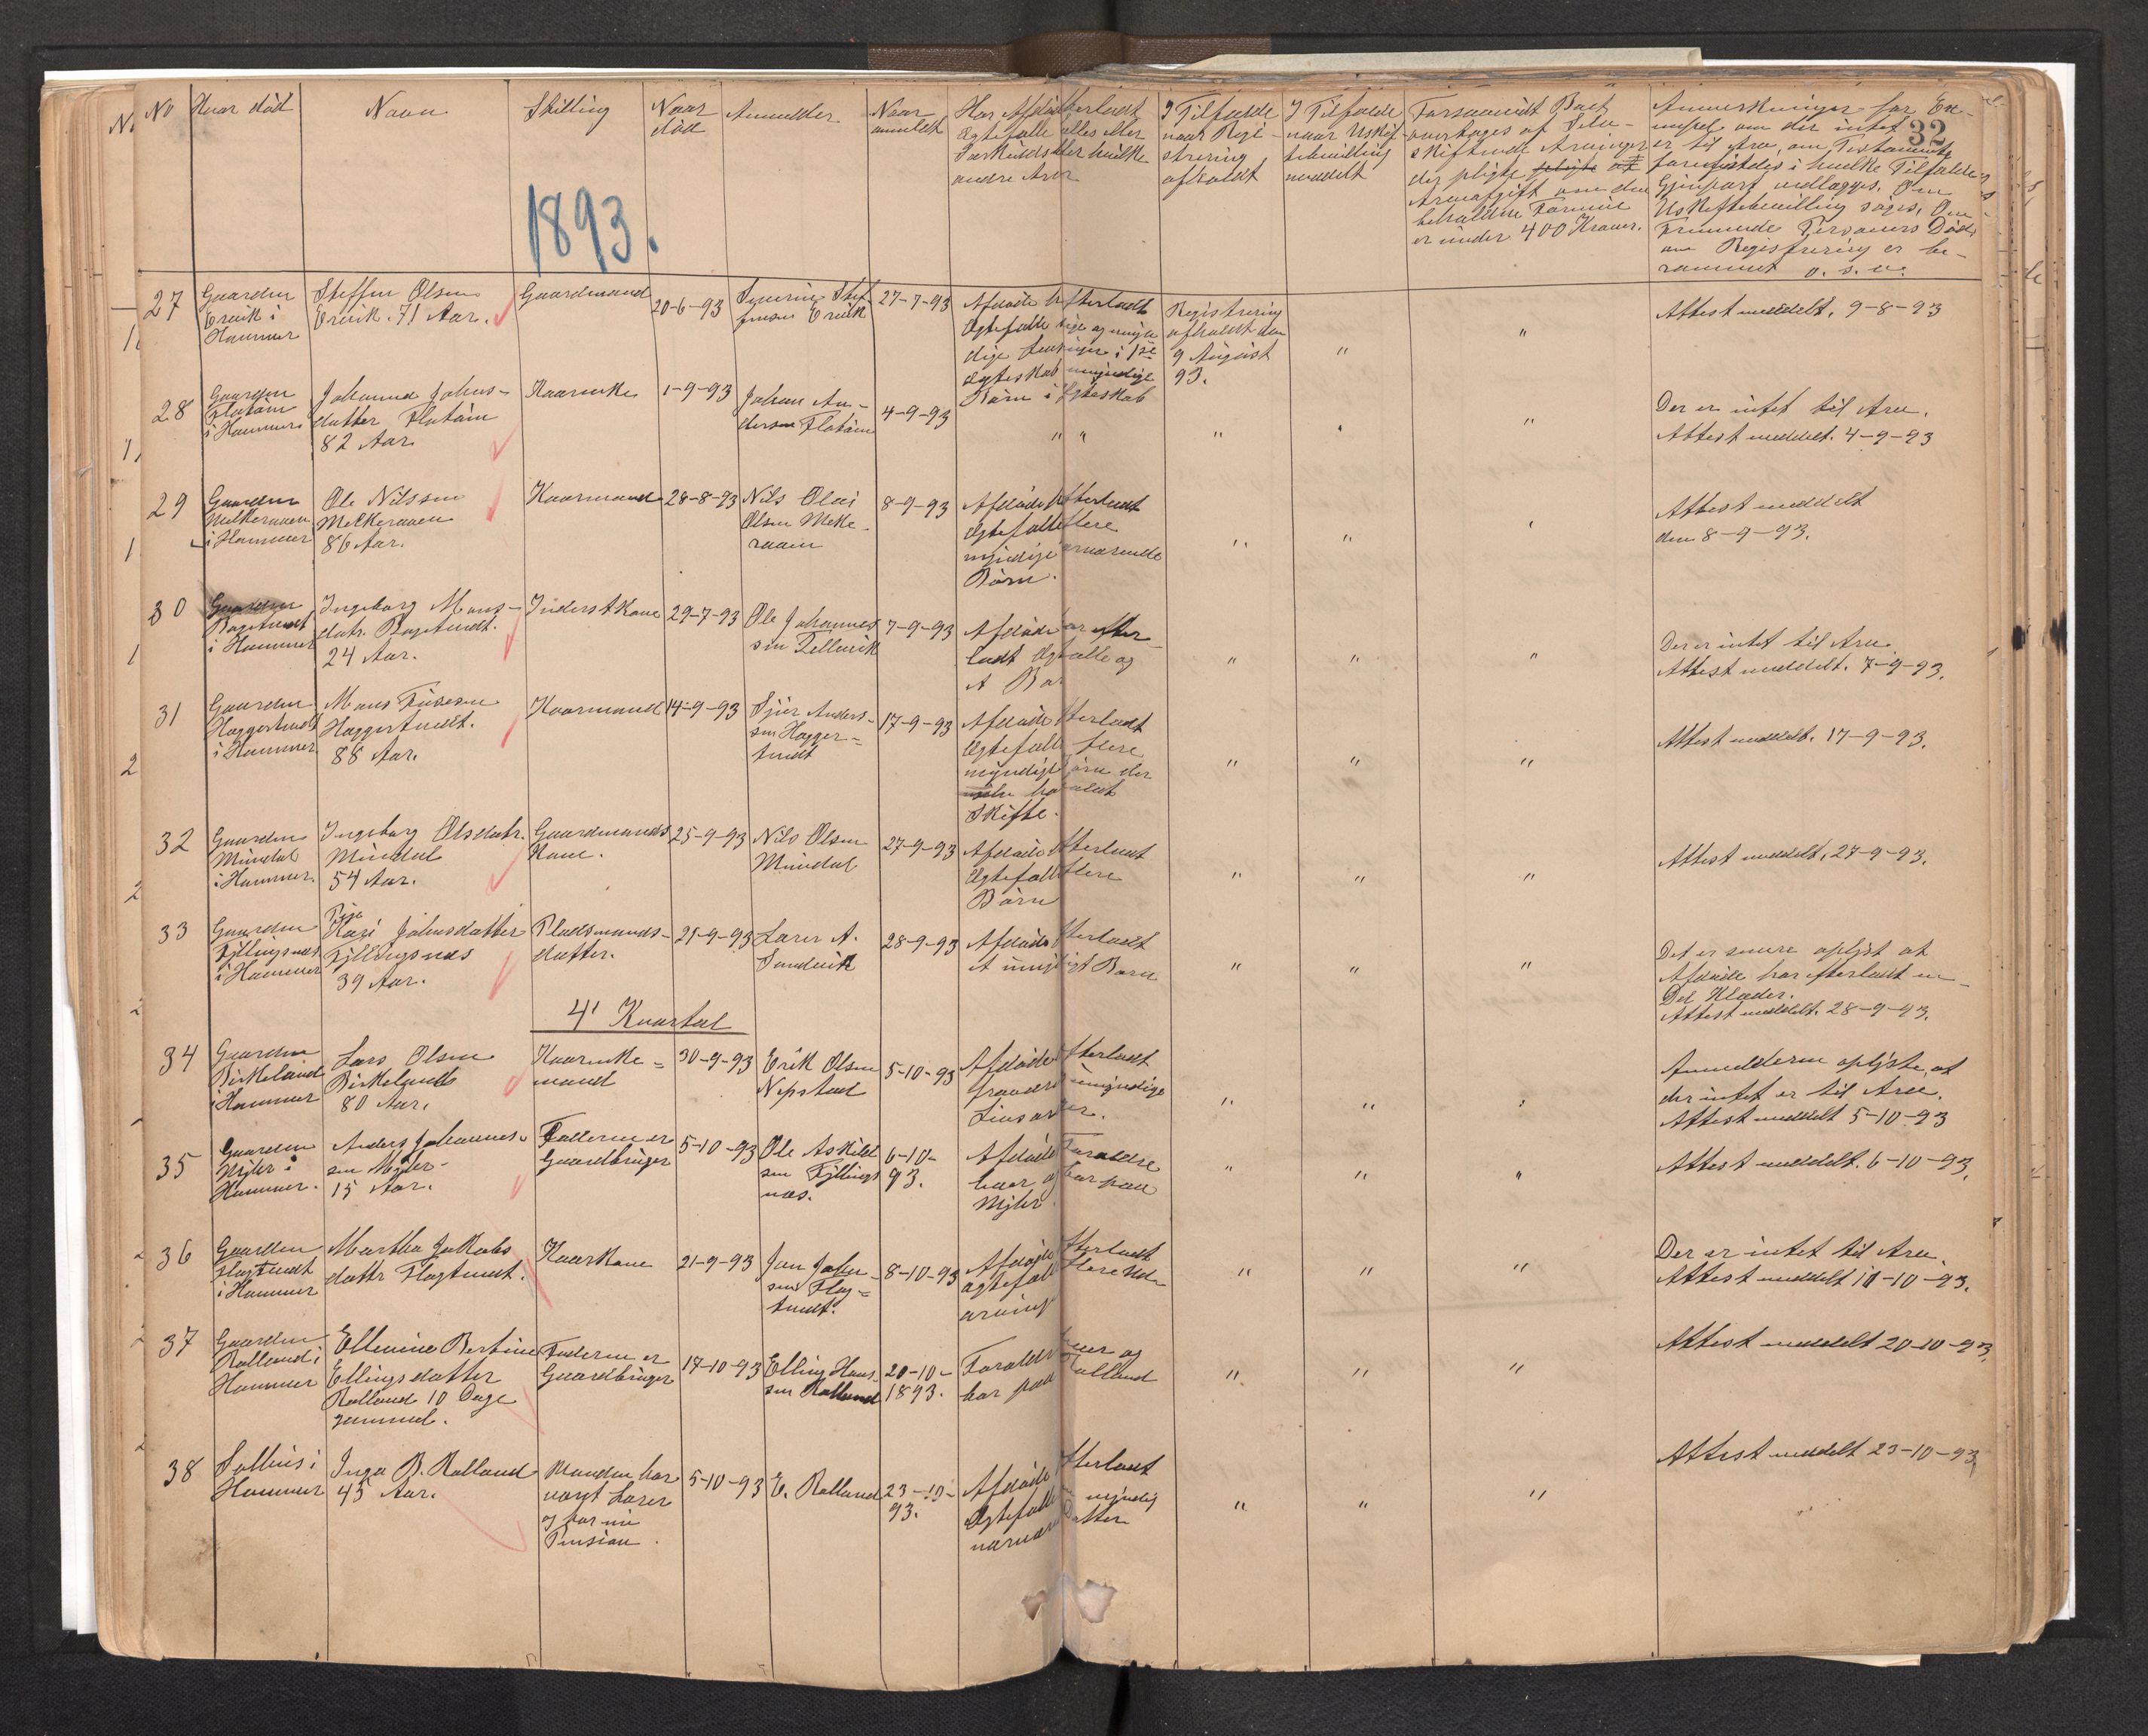 No
Hvor død
Navn
Stilling
Naar
død
Anmelder
Naar
anmeldt
Har Afdøde efterladt
Ægtefælle alles eller
Særkuldsb eller hvilke
andre Arv
I Tilfælde
naar Regi-
strering
afholdt
I Tilfælde
naar Uskif-
tebevilling
meddelt
Forsaavidt Boet
overtages af Selv-
skiftende Arvinger
der pligte
Arveafgift om den
beholdne Formue
er under 400 Kroner.
Anmerkninger for Ex-
empel om der intet
er til Arv, om Testamente
forefindes i hvilke Tilfælde
Gjenpart vedlægges. Om
Uskiftebevilling søges, Om
Fremmede Personers Død,
om Registrering er be-
rammet o. s. v.
32
1893.
27
Gaarden
Ervik i
Hammer
Steffen Olsen
Ervik. 71 Aar.
Gaardmand
20-6-93
Severin Stef-
fensen Ervik
27-7-93
Afdøde efterladt
Ægtefælle
dige Arvinger i 1ste
Ægteskab umyndige
Børn i Ægteskab
Registrering
afholdt den
9 August
93.
"
"
Attest meddelt, 9-8-93
28
Gaarden
Flatøen
i Hammer
Johanna Johns-
datter Flatøen
82 Aar.
Kaarenke
1-9-93
Johan An-
dersen Flatøen
4-9-93
" "
"
"
"
Der er intet til Arv.
Attest meddelt. 4-9-93
29
Gaarden
Melkeraaen
i Hammer
Ole Nilssen
Melkeraaen
86 Aar.
Kaarmand
28-8-93
Nils Olai
Olsen Melke-
raaen
8-9-93
Afdøde efterladt
Ægtefælle flere
myndige nærværende
Børn.
"
"
"
Attest meddelt
den 8-9-93.
30
Gaarden
i Hammer
Ingeborg Mons-
datr.
24 Aar.
Inderstkone
29-7-93
Ole Johannes-
sen Tellevik
7-9-93
Afdøde har efter-
ladt Ægtefælle og
et Barn
"
"
"
Der er intet til Arv.
Attest meddelt. 7-9-93.
31
Gaarden
Haggertvedt
i Hammer
Mons
Haggertvedt.
88 Aar.
Kaarmand
14-9-93
Sjur Anders-
sen Hagger-
tvedt
17-9-93
Afdøde efterladt
Ægtefælle flere
myndige Børn der
Skifte.
"
"
"
Attest meddelt. 17-9-93.
32
Gaarden
Mundal
i Hammer.
Ingeborg Olsdatr.
Mundal
54 Aar.
Gaardmands
Kone.
25-9-93
Nils Olsen
Mundal
27-9-93
Afdøde efterladt
Ægtefælle flere
Børn
"
"
"
Attest meddelt, 27-9-93.
33
Gaarden
Fyllingsnæs
i Hammer
Pige
Kari Johnsdatter
Fyllingsnæs
39 Aar.
Pladsmands-
datter.
21-9-93
Lærer A.
Sandvik
28-9-93
Afdøde efterladt
et umyndigt Barn
"
"
"
Det er senere oplyst at
Afdøde har efterladt en
Del Klæder.
Attest meddelt. 28-9-93.
4' Kvartal
34
Gaarden
Birkeland
i Hammer
Lars Olsen
Birkelands
80 Aar.
Kaarenke-
mand
30-9-93
Erik Olsen
Nepstad
5-10-93
Afdøde efterladt
umyndige
Livsarvinger.
"
"
"
Anmelderen oplyste, at
der intet er til Arv.
Attest meddelt 5-10-93
35
Gaarden
Mjler i
Hammer.
Anders Johannes-
sen Mjler-
15 Aar.
Faderen er
Gaardbruger
5-10-93
Ole Askild-
sen Fyllings-
næs.
6-10-
93.
Afdødes Forældre
lever og bor paa
Mjler.
"
"
"
Attest meddelt. 6-10-93.
36
Gaarden
Flagtvedt
i Hammer
Martha Jakobs
dattr Flagtvedt.
Kaarkone
21-9-93
Jon John-
sen Flag-
tvedt.
8-10-93
Afdøde efterladt
ægtefælle flere
arving
"
"
"
Der er intet til Arv.
Attest meddelt 10-10-93.
37
Gaarden
Rolland i
Hammer
Ellenine Bertine
Ellingsdatter
Rolland 10 Dage
gammel.
Faderen er
Gaardbruger
17-10-93
Elling Hans-
sen Rolland
20-10-
1893.
Forældre lever og
bor paa Rolland
"
"
"
Attest meddelt 20-10-93.
38
Salhus i
Hammer
Inga B. Rolland
45 Aar.
Manden har
været Lærer
og har nu
Pension.
5-10-93
E. Rolland
23-10-
93.
Afdøde efterladt
Ægtefælle myndig
nærværende Datter
"
"
"
Attest meddelt 23-10-93